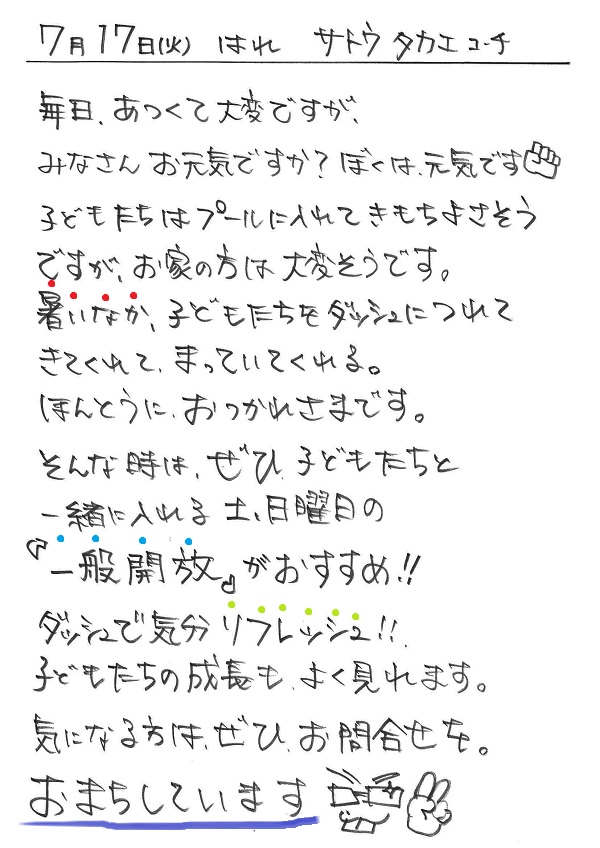 7月17日(火) はれ サトウタカエコーチ
毎日、あつくて大変ですが、
みなさんお元気ですか？ぼくは、元気です
子どもたちはプールに入れてきもちよさそう
ですが、お家の方は大変そうです。
暑いなか、子どもたちをダッシュにつれて
きてくれて、まっていてくれる。
ほんとうに、おつかれさまです。
そんな時は、ぜひ、子どもたちと
一緒に入れる土、日曜日の
『一般開放』がおすすめ!!
ダッシュで気分リフレッシュ!!
子どもたちの成長も、よく見れます。
気になる方は、ぜひ、お問合せを。
おまちしています